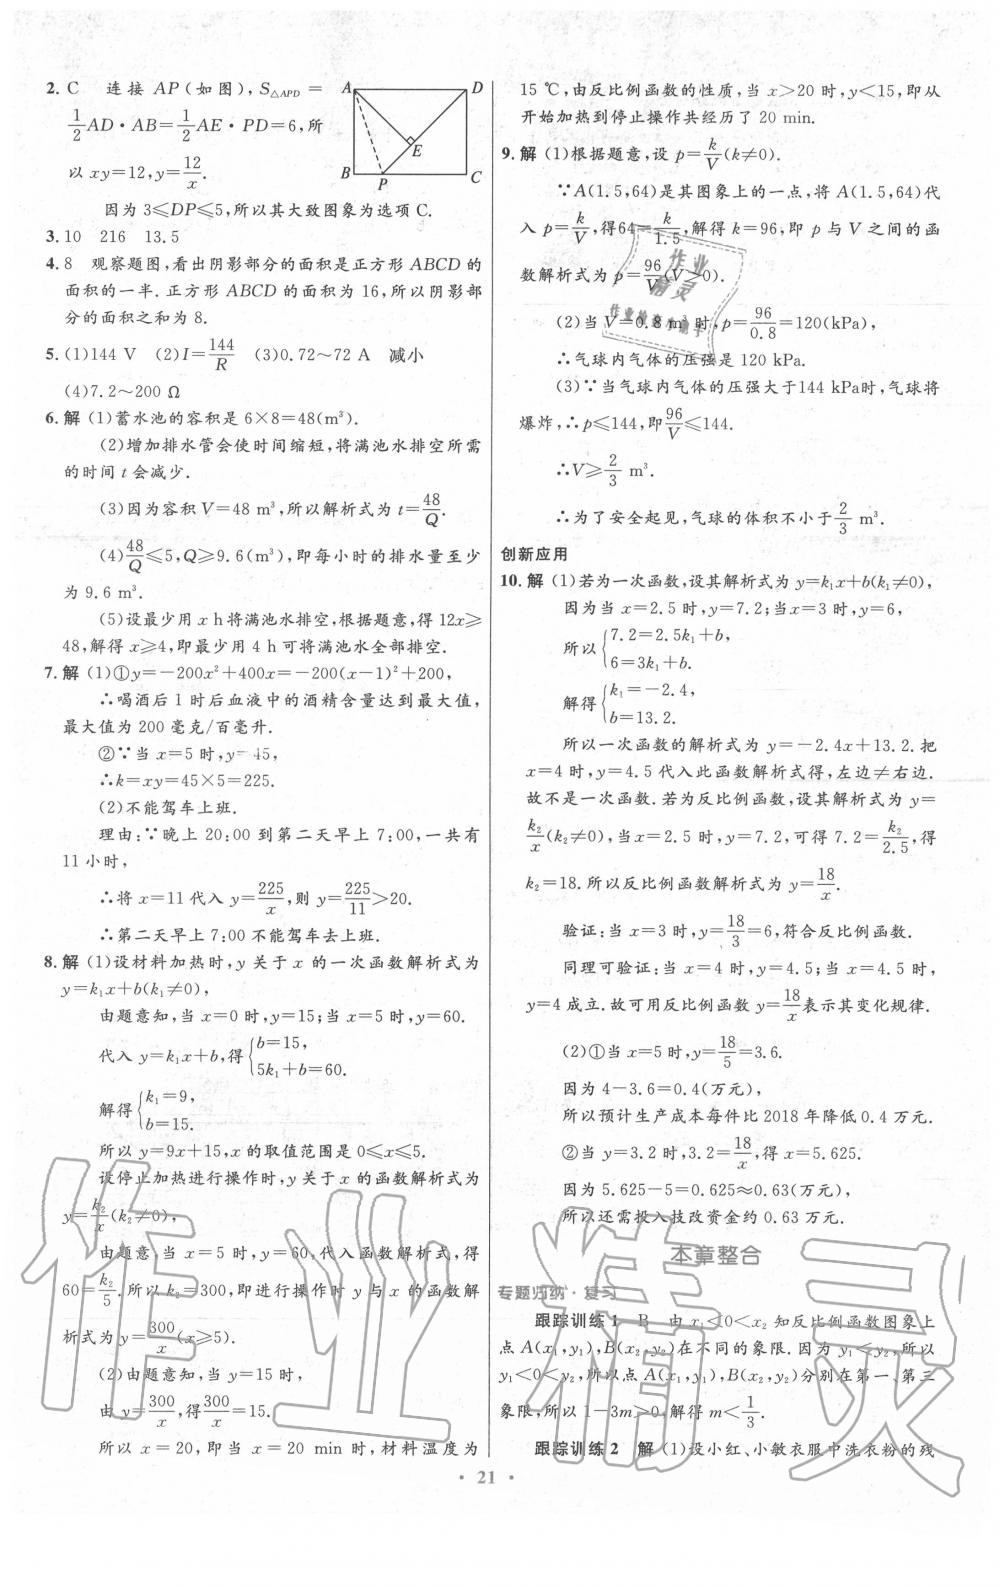 2. C 连接 AP(如图), S△APD =
1/2 AD·AB = 1/2 AE·PD = 6, 所
以 xy=12, y=12/x.
因为 3≤DP≤5, 所以其大致图象为选项 C.
A D E B P C
3. 10 216 13.5
4. 8 观察题图,看出阴影部分的面积是正方形 ABCD 的
面积的一半. 正方形 ABCD 的面积为 16, 所以阴影部
分的面积之和为 8.
5. (1)144 V (2)I=144/R (3)0.72~72 A 减小
(4)7.2~200 Ω
6. 解 (1)蓄水池的容积是 6×8=48(m³).
(2)增加排水管会使时间缩短,将满池水排空所需
的时间 t 会减少.
(3)因为容积 V=48 m³,所以解析式为 t=48/Q.
(4)48/Q≤5,Q≥9.6(m³),即每小时的排水量至少
为 9.6 m³.
(5)设最少用 x h 将满池水排空,根据题意,得 12x≥
48,解得 x≥4,即最少用 4 h 可将满池水全部排空.
7. 解 (1)①y=-200x²+400x=-200(x-1)²+200,
∴喝酒后 1 时后血液中的酒精含量达到最大值,
最大值为 200 毫克/百毫升.
②∵当 x=5 时,y=45,
∴k=xy=45×5=225.
(2)不能驾车上班.
理由:∵晚上 20:00 到第二天早上 7:00,一共有
11 小时,
∴将 x=11 代入 y=225/x,则 y=225/11>20.
∴第二天早上 7:00 不能驾车去上班.
8. 解 (1)设材料加热时,y 关于 x 的一次函数解析式为
y=k₁x+b(k₁≠0),
由题意知,当 x=0 时,y=15;当 x=5 时,y=60.
代入 y=k₁x+b,得{b=15,
5k₁+b=60.
解得{k₁=9,
b=15.
所以 y=9x+15,x 的取值范围是 0≤x≤5.
设停止加热进行操作时,y 关于 x 的函数解析式为
y=k₂/x(k₂≠0),
由题意,当 x=5 时,y=60,代入函数解析式,得
60=k₂/5.所以 k₂=300,即进行操作时 y 与 x 的函数解
析式为 y=300/x(x≥5).
(2)由题意知,当 y=15 时,
由 y=300/x,得300/x=15.
所以 x=20,即当 x=20 min 时,材料温度为
15 ℃,由反比例函数的性质,当 x>20 时,y<15,即从
开始加热到停止操作共经历了 20 min.
9. 解 (1)根据题意,设 p=k/V(k≠0).
∵A(1.5,64)是其图象上的一点,将 A(1.5,64)代
入 p=k/V,得64=k/1.5,解得 k=96,即 p 与 V 之间的函
数解析式为 p=96/V(V>0).
(2)当 V=0.8 m³ 时,p=96/0.8=120(kPa),
∴气球内气体的压强是 120 kPa.
(3)∵当气球内气体的压强大于144 kPa时,气球将
爆炸,∴p≤144,即96/V≤144.
∴V≥2/3 m³.
∴为了安全起见,气球的体积不小于2/3 m³.
创新应用
10. 解 (1)若为一次函数,设其解析式为 y=k₁x+b(k₁≠0),
因为当 x=2.5 时,y=7.2;当 x=3 时,y=6,
所以{7.2=2.5k₁+b,
6=3k₁+b.
解得{k₁=-2.4,
b=13.2.
所以一次函数的解析式为 y=-2.4x+13.2.把
x=4 时,y=4.5 代入此函数解析式得,左边≠右边.
故不是一次函数.若为反比例函数,设其解析式为 y=
k₂/x(k₂≠0),当 x=2.5 时,y=7.2,可得 7.2=k₂/2.5,得
k₂=18.所以反比例函数解析式为 y=18/x.
验证:当 x=3 时,y=18/3=6,符合反比例函数.
同理可验证:当 x=4 时,y=4.5;当 x=4.5 时,
y=4 成立.故可用反比例函数 y=18/x表示其变化规律.
(2)①当 x=5 时,y=18/5=3.6.
因为 4-3.6=0.4(万元),
所以预计生产成本每件比 2018 年降低 0.4 万元.
②当 y=3.2 时,3.2=18/x,所以 x=5.625.
因为 5.625-5=0.625≈0.63(万元),
所以还需投入技改资金约 0.63 万元.
本章整合
专题归纳·复习
跟踪训练 1 B 由 x₁<0<x₂ 知反比例函数图象上
点 A(x₁,y₁),B(x₂,y₂)在不同的象限.因为 y₁<y₂,所以
y₁<0<y₂,所以点 A(x₁,y₁),B(x₂,y₂)分别在第一、第三
象限,所以 1-3m>0.解得 m<1/3.
跟踪训练 2 解 (1)设小红、小敏衣服中洗衣粉的残
· 21 ·
作业精灵
作业精灵